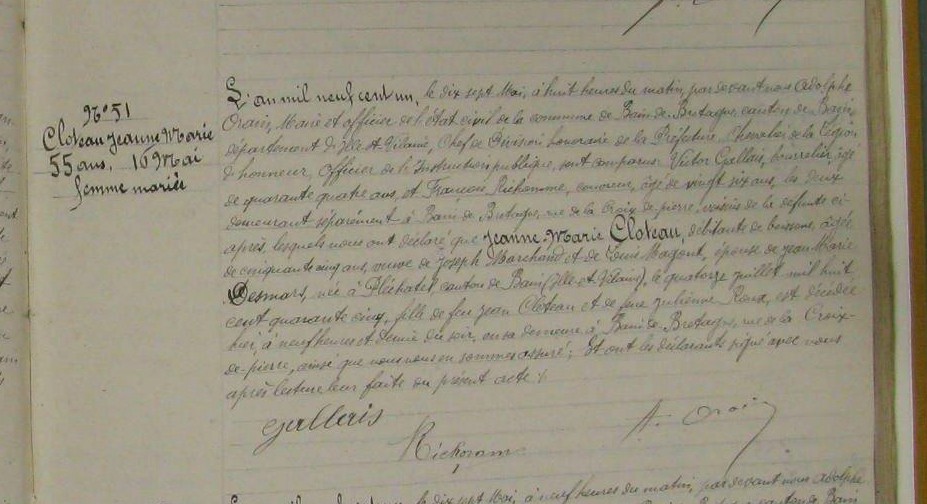 N° 51
Cloteau Jeanne Marie
55 ans, 16 Mai
femme mariée
L'an mil neuf cent un, le dix sept Mai, à huit heures du matin, par devant nous Adolphe
Orain, Maire et officier de l'état civil de la commune de Bain-de-Bretagne, canton de Bain,
département d'Ille et Vilaine, Chef de Division honoraire de la Préfecture, Chevalier de la légion
d'honneur, Officier de l'Instruction publique, sont comparus Victor Gallais, bourrelier, âgé
de quarante quatre ans, et François Richomme, âgé de vingt six ans, les deux
demeurant séparément à Bain-de-Bretagne, rue de la Croix de pierre, voisins de la defunte ci-
après, lesquels nous ont déclaré que Jeanne-Marie Cloteau, débitante de boissons, âgée
de cinquante cinq ans, veuve de Joseph Marchand et de Louis Magont, épouse de Jean Marie
Desmars, née à Pléchatel canton de Bain (Ille et Vilaine), le quatorze juillet mil huit
cent quarante cinq, fille de feu Jean Cloteau et de feue Julienne Roux, est décédée
hier, à neuf heures et demie du soir, en sa demeure à Bain-de-Bretagne, rue de la Croix-
de-pierre, ainsi que nous nous en sommes assuré; Et ont les déclarants signé avec nous
après lecture leur faite du présent acte ./.
Gallais
Richomme
A. Orain
le dix sept Mai, à neuf heures du matin, par devant nous Adolphe
canton de Bain